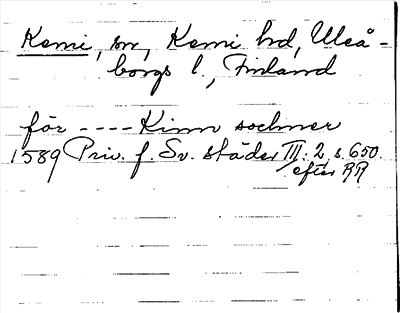 Kemi, sn, Kemi hd, Uleå-
borgs l., Finland
för ---- Kimn sochner
1589 Priv. f. Sv. städer III:2 s. 650.
efter RR